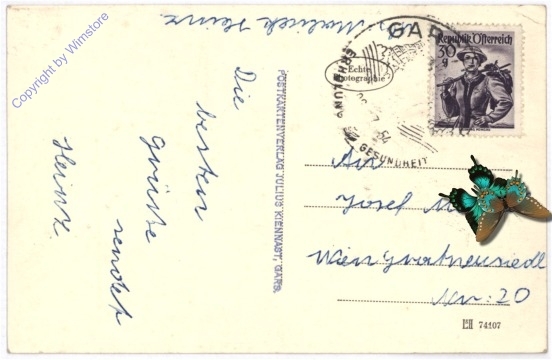 Copyright by Wimstore
Heinz
Die
besten
Grüsse
sendet
Heinz
POSTKARTENVERLAG JULIUS KIENNAST, GARS.
Echte
Photographie
GA
ERHOLUNG
GESUNDHEIT
54
Republik Österreich
30
g
An
Josef
Wien
Nr: 20
74107